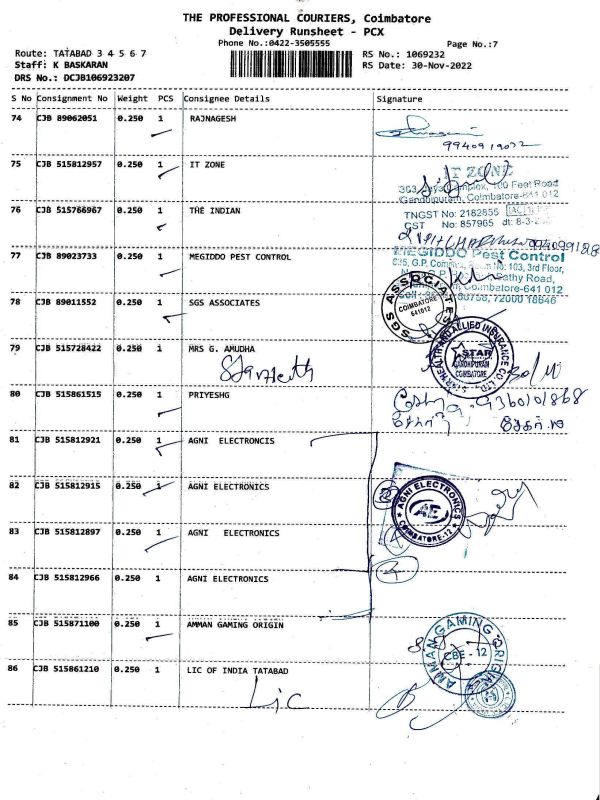 THE PROFESSIONAL COURIERS, Coimbatore
Delivery Runsheet - PCX
Phone No.:0422-3505555
Page No.:7
Route: TATABAD 3 4 5 6 7
RS No.: 1069232
Staff: K BASKARAN
RS Date: 30-Nov-2022
DRS No.: DCJB106923207
S No Consignment No Weight PCS Consignee Details Signature
74 CJB 89062051 0.250 1 RAJNAGESH
9940919032
75 CJB 515812957 0.250 1 IT ZONE
IT ZONE
100 Feet Road
Gandhipuram, Coimbatore-641 012
76 CJB 515766967 0.250 1 THE INDIAN
TNGST No: 2182855
CST No: 857965 dt: 8-3-
77 CJB 89023733 0.250 1 MEGIDDO PEST CONTROL
MEGIDDO Pest Control
No: 103, 3rd Floor,
Sathy Road,
Coimbatore-641 012
72000 18646
78 CJB 89011552 0.250 1 SGS ASSOCIATES
SGS ASSOCIATES
COIMBATORE
641012
79 CJB 515728422 0.250 1 MRS G. AMUDHA
STAR HEALTH AND ALLIED INSURANCE CO. LTD.
STAR
GANDHIPURAM
COIMBATORE
80 CJB 515861515 0.250 1 PRIYESHG
9360101868
81 CJB 515812921 0.250 1 AGNI ELECTRONCIS
82 CJB 515812915 0.250 1 AGNI ELECTRONICS
AGNI ELECTRONICS
AE
COIMBATORE-12
83 CJB 515812897 0.250 1 AGNI ELECTRONICS
84 CJB 515812966 0.250 1 AGNI ELECTRONICS
85 CJB 515871100 0.250 1 AMMAN GAMING ORIGIN
AMMAN GAMING ORIGIN
CBE - 12
86 CJB 515861210 0.250 1 LIC OF INDIA TATABAD
Lic